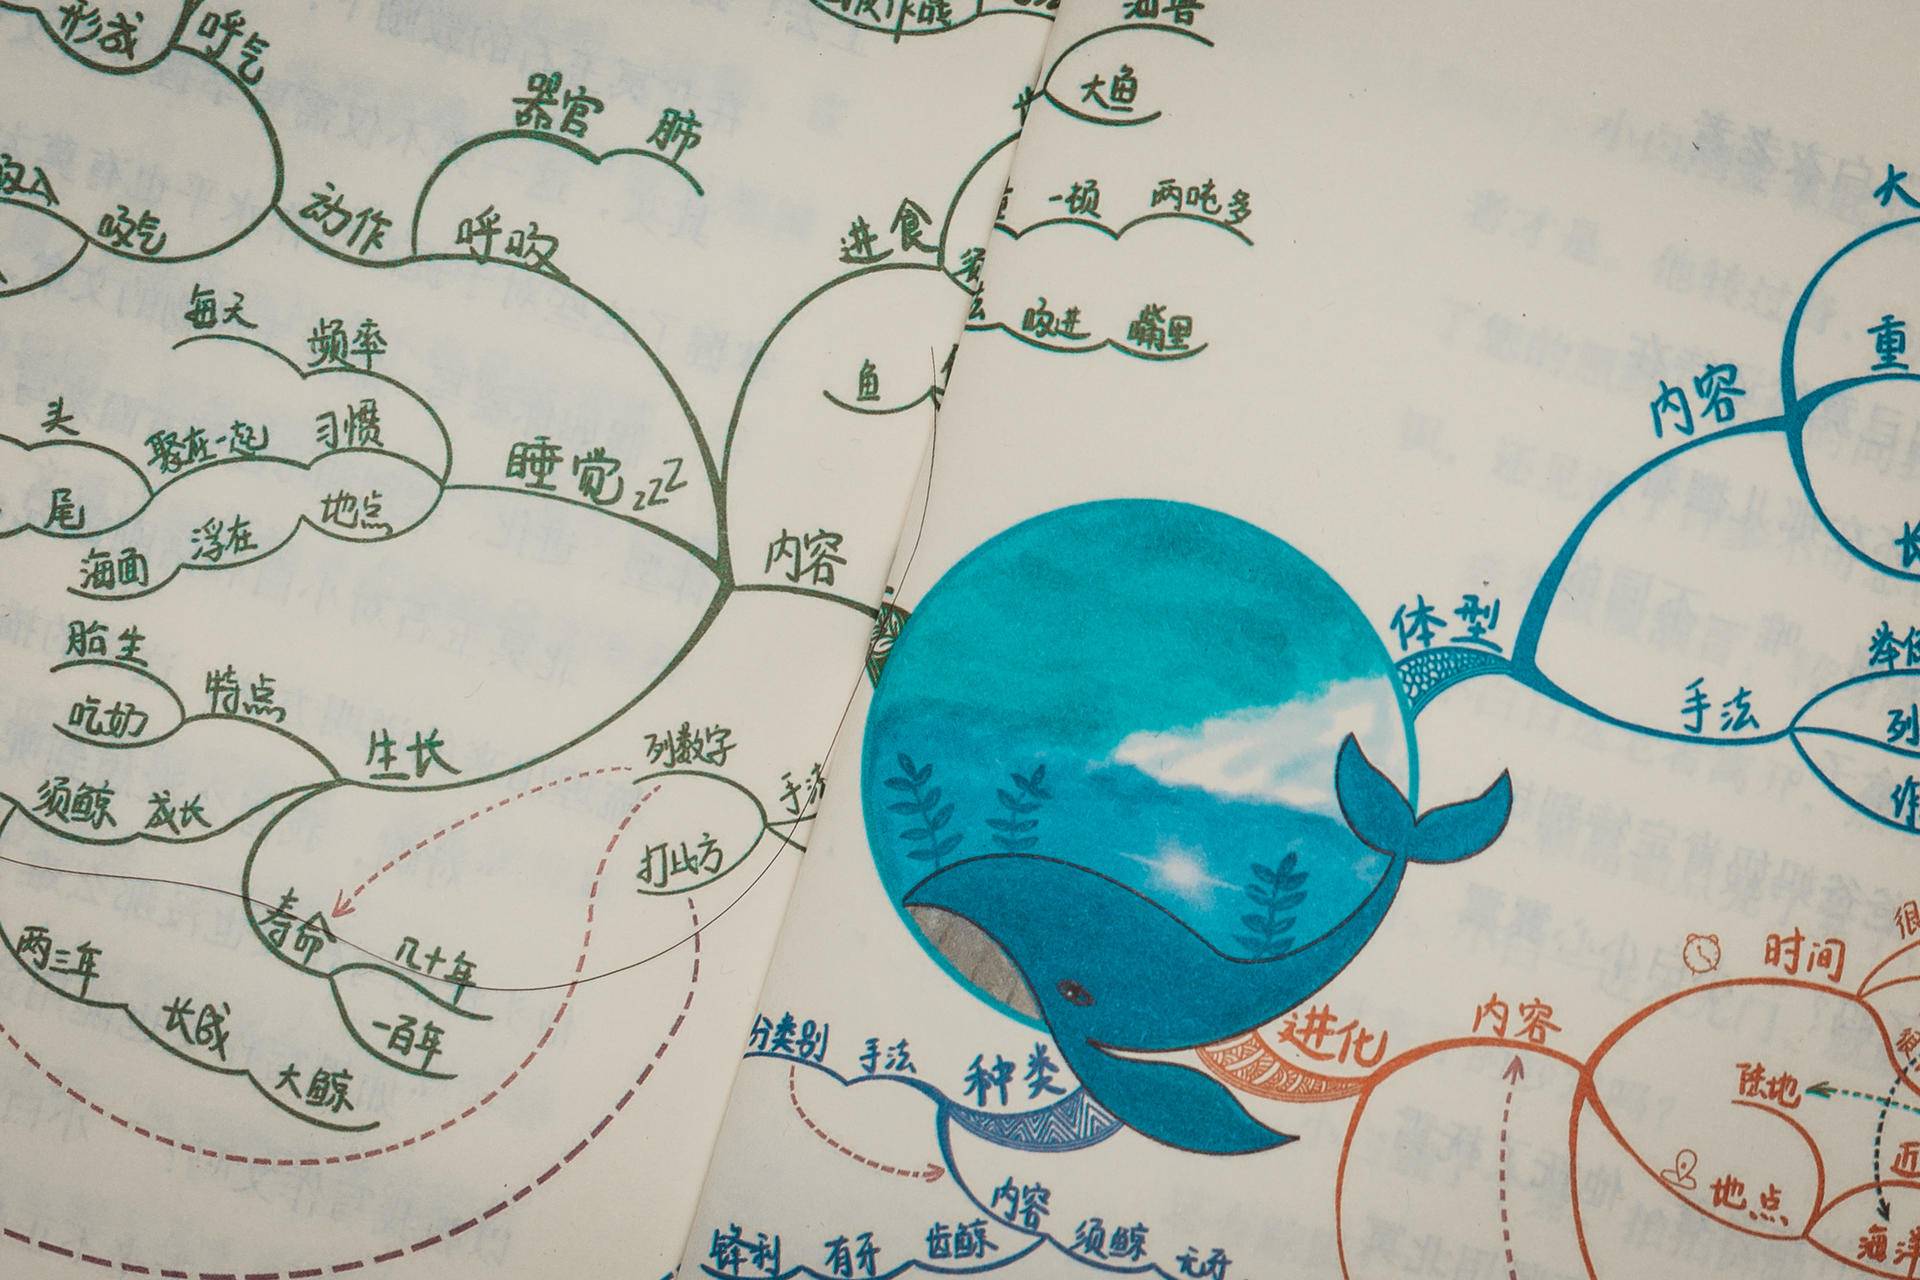 形成
呼气
器官
肺
大鱼
一顿
两吨多
吸气
动作
呼吸
进食
每天
频率
吸进
嘴里
鱼
头
聚在一起
习惯
睡觉zzz
尾
地点
海面
浮在
内容
胎生
特点
吃奶
生长
列数字
须鲸
成长
打比方
寿命
几十年
两三年
长成
一百年
大鲸
大
重
内容
长
体型
手法
列
作
时间
很
内容
进化
陆地
近
地点
海洋
分类别
手法
种类
内容
锋利
有牙
齿鲸
须鲸
无牙